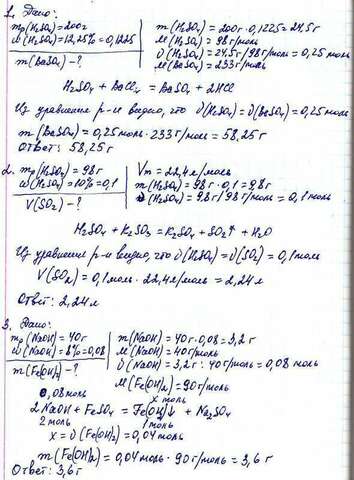 1. Дано:
mр(H₂SO₄)=200г
ω(H₂SO₄)=12,25%=0,1225
m(BaSO₄)-?
m(H₂SO₄)=200г·0,1225=24,5г
M(H₂SO₄)=98г/моль
ν(H₂SO₄)=24,5г/98г/моль=0,25 моль
M(BaSO₄)=233г/моль
H₂SO₄+BaCl₂=BaSO₄+2HCl
Из уравнения р-и видно, что ν(H₂SO₄)=ν(BaSO₄)=0,25моль
m(BaSO₄)=0,25моль·233г/моль=58,25г
Ответ: 58,25г
2. mр(H₂SO₄)=98г
ω(H₂SO₄)=10%=0,1
V(SO₂)-?
Vm=22,4л/моль
m(H₂SO₄)=98г·0,1=9,8г
ν(H₂SO₄)=9,8г/98г/моль=0,1моль
H₂SO₄+K₂SO₃=K₂SO₄+SO₂↑+H₂O
Из уравнения р-и видно, что ν(H₂SO₄)=ν(SO₂)=0,1моль
V(SO₂)=0,1моль·22,4л/моль=2,24л
Ответ: 2,24л
3. Дано:
mр(NaOH)=40г
ω(NaOH)=8%=0,08
m(Fe(OH)₂)-?
m(NaOH)=40г·0,08=3,2г
M(NaOH)=40г/моль
ν(NaOH)=3,2г:40г/моль=0,08моль
M(Fe(OH)₂)=90г/моль
0,08моль x моль
2NaOH+FeSO₄=Fe(OH)₂↓+Na₂SO₄
2моль 1моль
x=ν(Fe(OH)₂)=0,04моль
m(Fe(OH)₂)=0,04моль·90г/моль=3,6г
Ответ: 3,6г